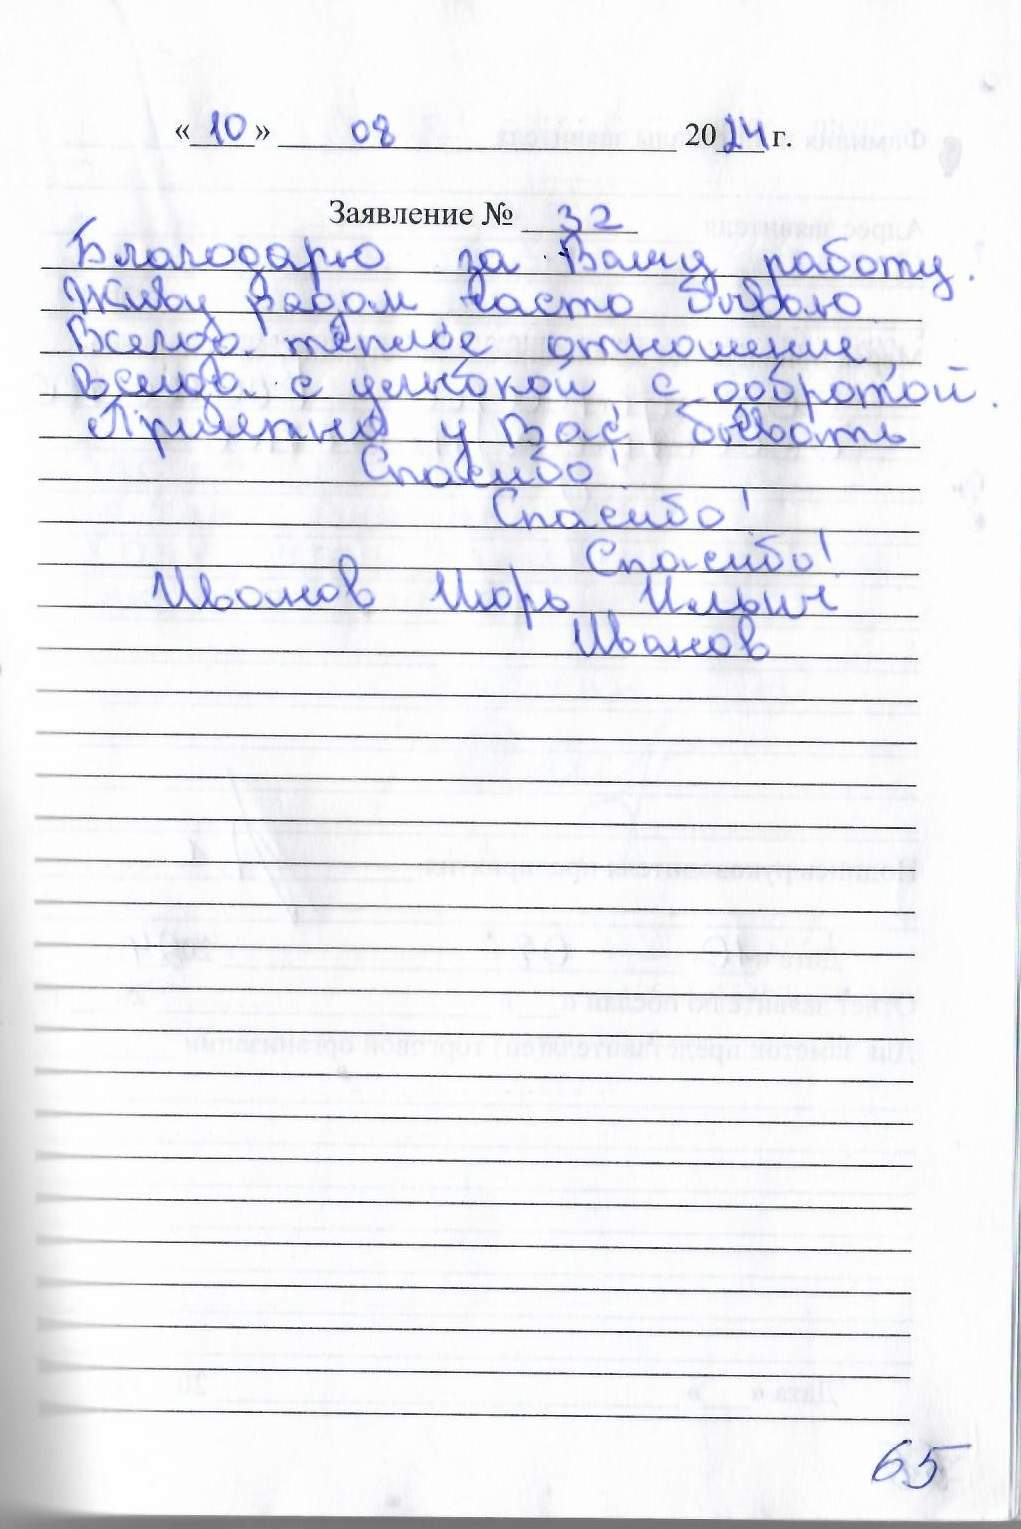 «10» 08 2024 г.
Заявление № 32
Благодарю за Вашу работу.
Живу рядом часто бываю
Всегда теплое отношение
Всегда с улыбкой, с добротой.
Приятно у Вас бывать
Спасибо!
Спасибо!
Спасибо!
Иванов Игорь Ильич
Иванов
65